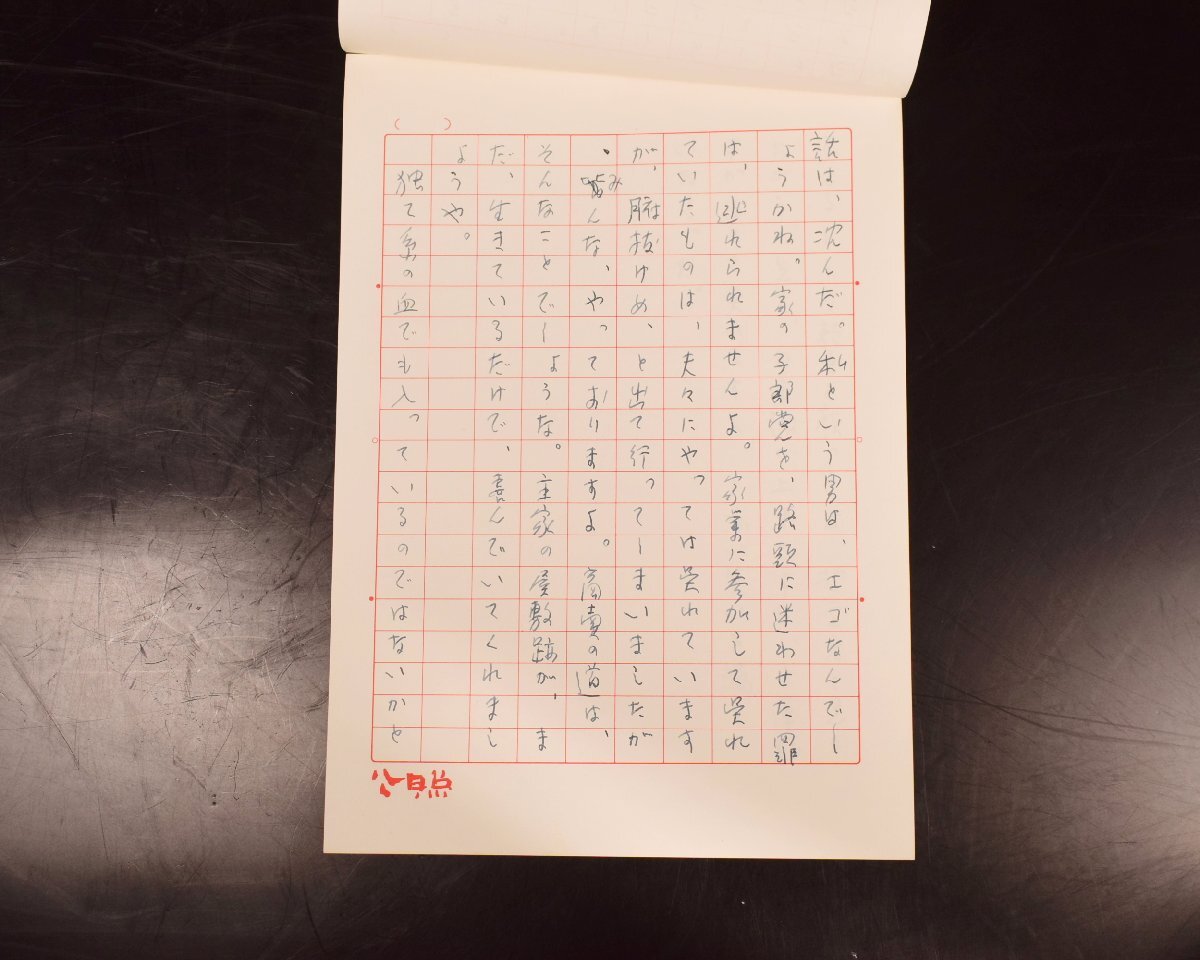 話は、沈んだ。私という男は、エゴなんでし
ょうかね。家の子郎党を、路頭に迷わせた罪
は、逃れられませんよ。家業に参加して呉れ
ていたものは、夫々にやっては呉れています
が、腑抜けめ、と出て行ってしまいましたが
、みんな、やっておりますよ。商売の道は、
そんなことでしょうな。主家の屋敷跡が、ま
だ、生きているだけで、喜んでいてくれまし
ようや。
独乙系の血でも入っているのではないかと